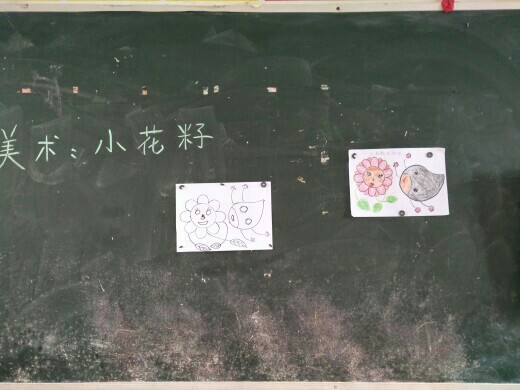 美术：小花籽